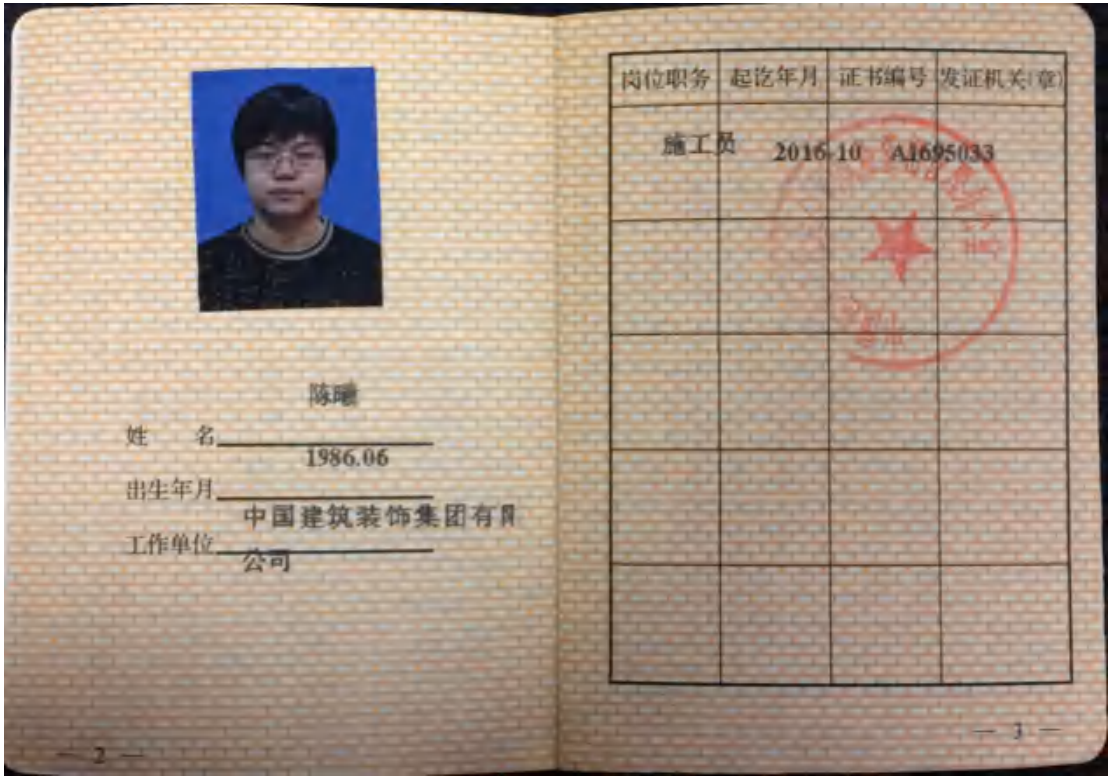 陈曦
姓 名
1986.06
出生年月
中国建筑装饰集团有限
工作单位
公司
— 2 —
岗位职务 起讫年月 证书编号 发证机关(章)
施工员 2016-10 A1695033
— 3 —